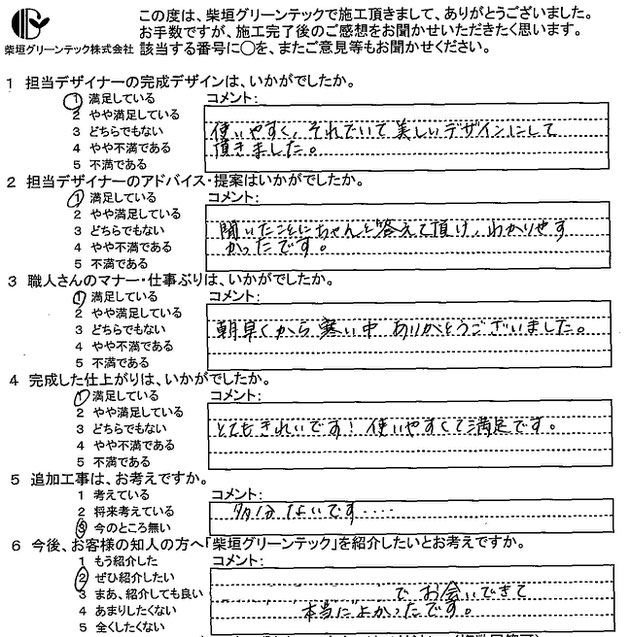 この度は、柴垣グリーンテックで施工頂きまして、ありがとうございました。
お手数ですが、施工完了後のご感想をお聞かせいただきたく思います。
柴垣グリーンテック株式会社 該当する番号に○を、またご意見等もお聞かせください。
1 担当デザイナーの完成デザインは、いかがでしたか。
1 満足している コメント:
2 やや満足している
3 どちらでもない 使いやすく、それでいて美しいデザインにして
4 やや不満である 頂きました。
5 不満である
2 担当デザイナーのアドバイス・提案はいかがでしたか。
1 満足している コメント:
2 やや満足している
3 どちらでもない 聞いたことにちゃんと答えて頂け、わかりやす
4 やや不満である かったです。
5 不満である
3 職人さんのマナー・仕事ぶりは、いかがでしたか。
1 満足している コメント:
2 やや満足している
3 どちらでもない 朝早くから寒い中ありがとうございました。
4 やや不満である
5 不満である
4 完成した仕上がりは、いかがでしたか。
1 満足している コメント:
2 やや満足している
3 どちらでもない とてもきれいです!使いやすくて満足です。
4 やや不満である
5 不満である
5 追加工事は、お考えですか。
1 考えている コメント:
2 将来考えている 多分ないです・・・・
3 今のところ無い
6 今後、お客様の知人の方へ「柴垣グリーンテック」を紹介したいとお考えですか。
1 もう紹介した コメント:
2 ぜひ紹介したい
3 まあ、紹介しても良い でお会いできて
4 あまりしたくない 本当によかったです。
5 全くしたくない